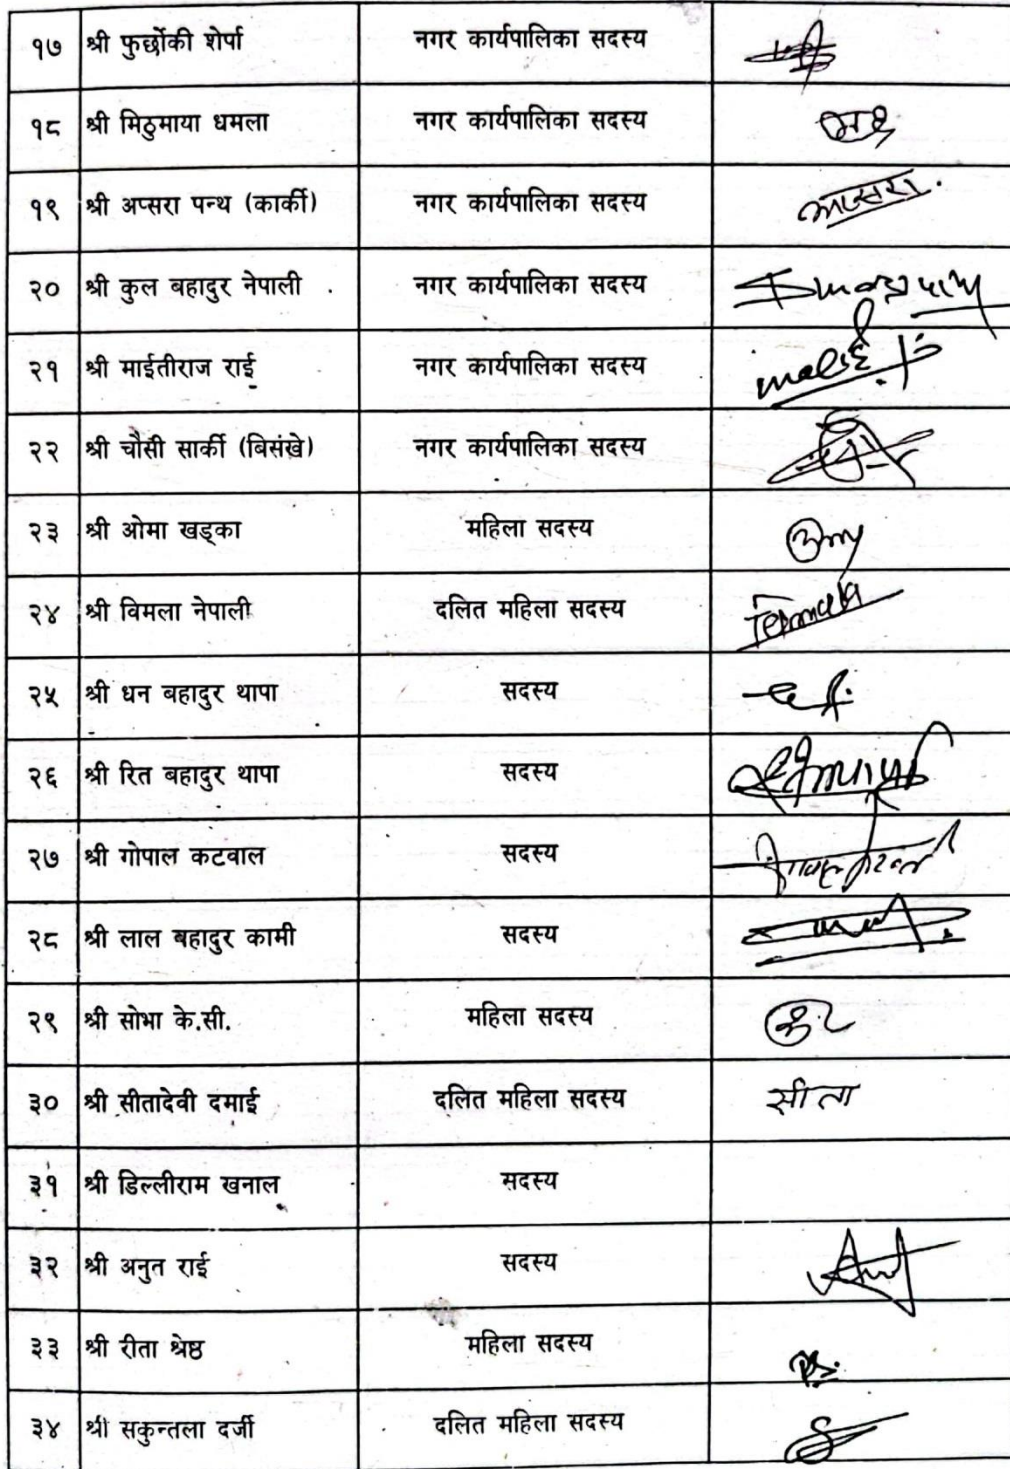 १७ श्री फुर्छोकी शेर्पा नगर कार्यपालिका सदस्य
१८ श्री मिठुमाया धमला नगर कार्यपालिका सदस्य
१९ श्री अप्सरा पन्थ (कार्की) नगर कार्यपालिका सदस्य अप्सरा.
२० श्री कुल बहादुर नेपाली नगर कार्यपालिका सदस्य
२१ श्री माईतीराज राई नगर कार्यपालिका सदस्य
२२ श्री चौसी सार्की (बिसंखे) नगर कार्यपालिका सदस्य
२३ श्री ओमा खड्का महिला सदस्य
२४ श्री विमला नेपाली दलित महिला सदस्य
२५ श्री धन बहादुर थापा सदस्य
२६ श्री रित बहादुर थापा सदस्य
२७ श्री गोपाल कटवाल सदस्य
२८ श्री लाल बहादुर कामी सदस्य
२९ श्री सोभा के.सी. महिला सदस्य
३० श्री सीतादेवी दमाई दलित महिला सदस्य सीता
३१ श्री डिल्लीराम खनाल सदस्य
३२ श्री अनुत राई सदस्य
३३ श्री रीता श्रेष्ठ महिला सदस्य
३४ श्री सकुन्तला दर्जी दलित महिला सदस्य